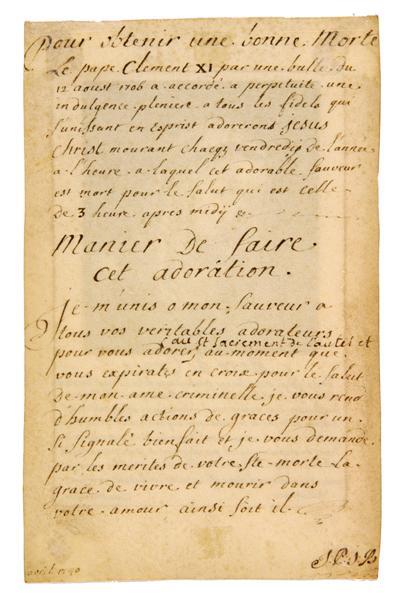 Pour obtenir une bonne Morte
Le pape Clement XI par une bulle du
12 aoust 1706 a accordé a perpetuite une
indulgence pleniere a tous les fidels qui
s'unissant en Esprist adorerons Jesus
Christ mourant chaeqs vendredis de l'année
a l'heure a laquel cet adorable sauveur
est mort pour le salut qui est celle
de 3 heure apres midÿ
Manier De faire
cet adorátion.
Je m'unis o mon Sauveur a
tous vos veritables adorateurs
au St sacrement de l'autel et
pour vous adorer, au moment que
vous expirates en croix pour le salut
de mon ame criminelle, je vous rend
d'humbles actions de graces pour un
si signalé bienfait et je vous demande
par les merites de votre Ste morte la
grace de vivre et mourir dans
votre amour ainsi soit il.